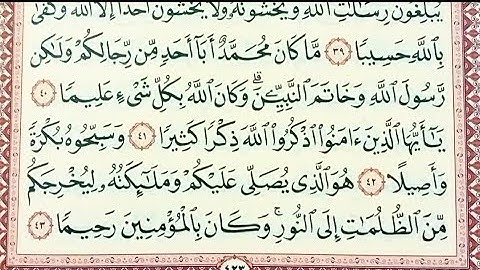 يُبَلِّغُونَ رِسَٰلَٰتِ ٱللَّهِ وَيَخْشَوْنَهُۥ وَلَا يَخْشَوْنَ أَحَدًا إِلَّا ٱللَّهَ وَكَفَىٰ
بِٱللَّهِ حَسِيبًا ٣٩ مَّا كَانَ مُحَمَّدٌ أَبَآ أَحَدٍ مِّن رِّجَالِكُمْ وَلَٰكِن
رَّسُولَ ٱللَّهِ وَخَاتَمَ ٱلنَّبِيِّـۧنَ ۗ وَكَانَ ٱللَّهُ بِكُلِّ شَىْءٍ عَلِيمًا ٤٠
يَٰٓأَيُّهَا ٱلَّذِينَ ءَامَنُوا۟ ٱذْكُرُوا۟ ٱللَّهَ ذِكْرًا كَثِيرًا ٤١ وَسَبِّحُوهُ بُكْرَةً
وَأَصِيلًا ٤٢ هُوَ ٱلَّذِى يُصَلِّى عَلَيْكُمْ وَمَلَٰٓئِكَتُهُۥ لِيُخْرِجَكُم
مِّنَ ٱلظُّلُمَٰتِ إِلَى ٱلنُّورِ ۚ وَكَانَ بِٱلْمُؤْمِنِينَ رَحِيمًا ٤٣
٤٢٣